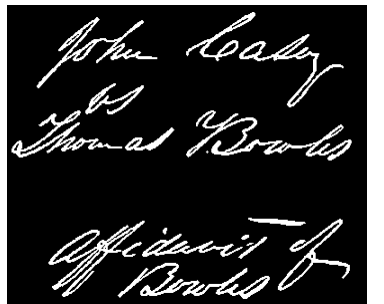 John Casey
vs
Thomas T. Bowles
Affidavit of
Bowles